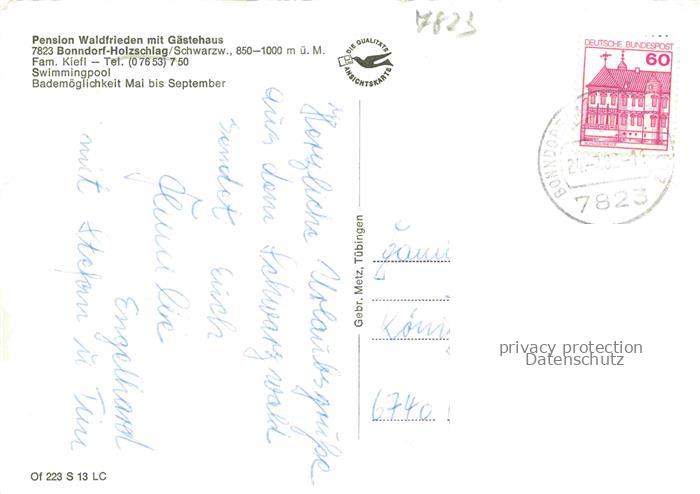 7823
Pension Waldfrieden mit Gästehaus
7823 Bonndorf-Holzschlag/Schwarzw., 850–1000 m ü. M.
Fam. Kiefl — Tel. (0 76 53) 7 50
Swimmingpool
Bademöglichkeit Mai bis September
DIE QUALITÄTS
ANSICHTSKARTE
DEUTSCHE BUNDESPOST
60
BONNDORF
7823
Herzliche Urlaubsgrüße
aus dem Schwarzwald
sendet Euch
Familie
Engelhard
mit Stefan u. Tim
Gebr. Metz, Tübingen
6740
privacy protection
Datenschutz
Of 223 S 13 LC